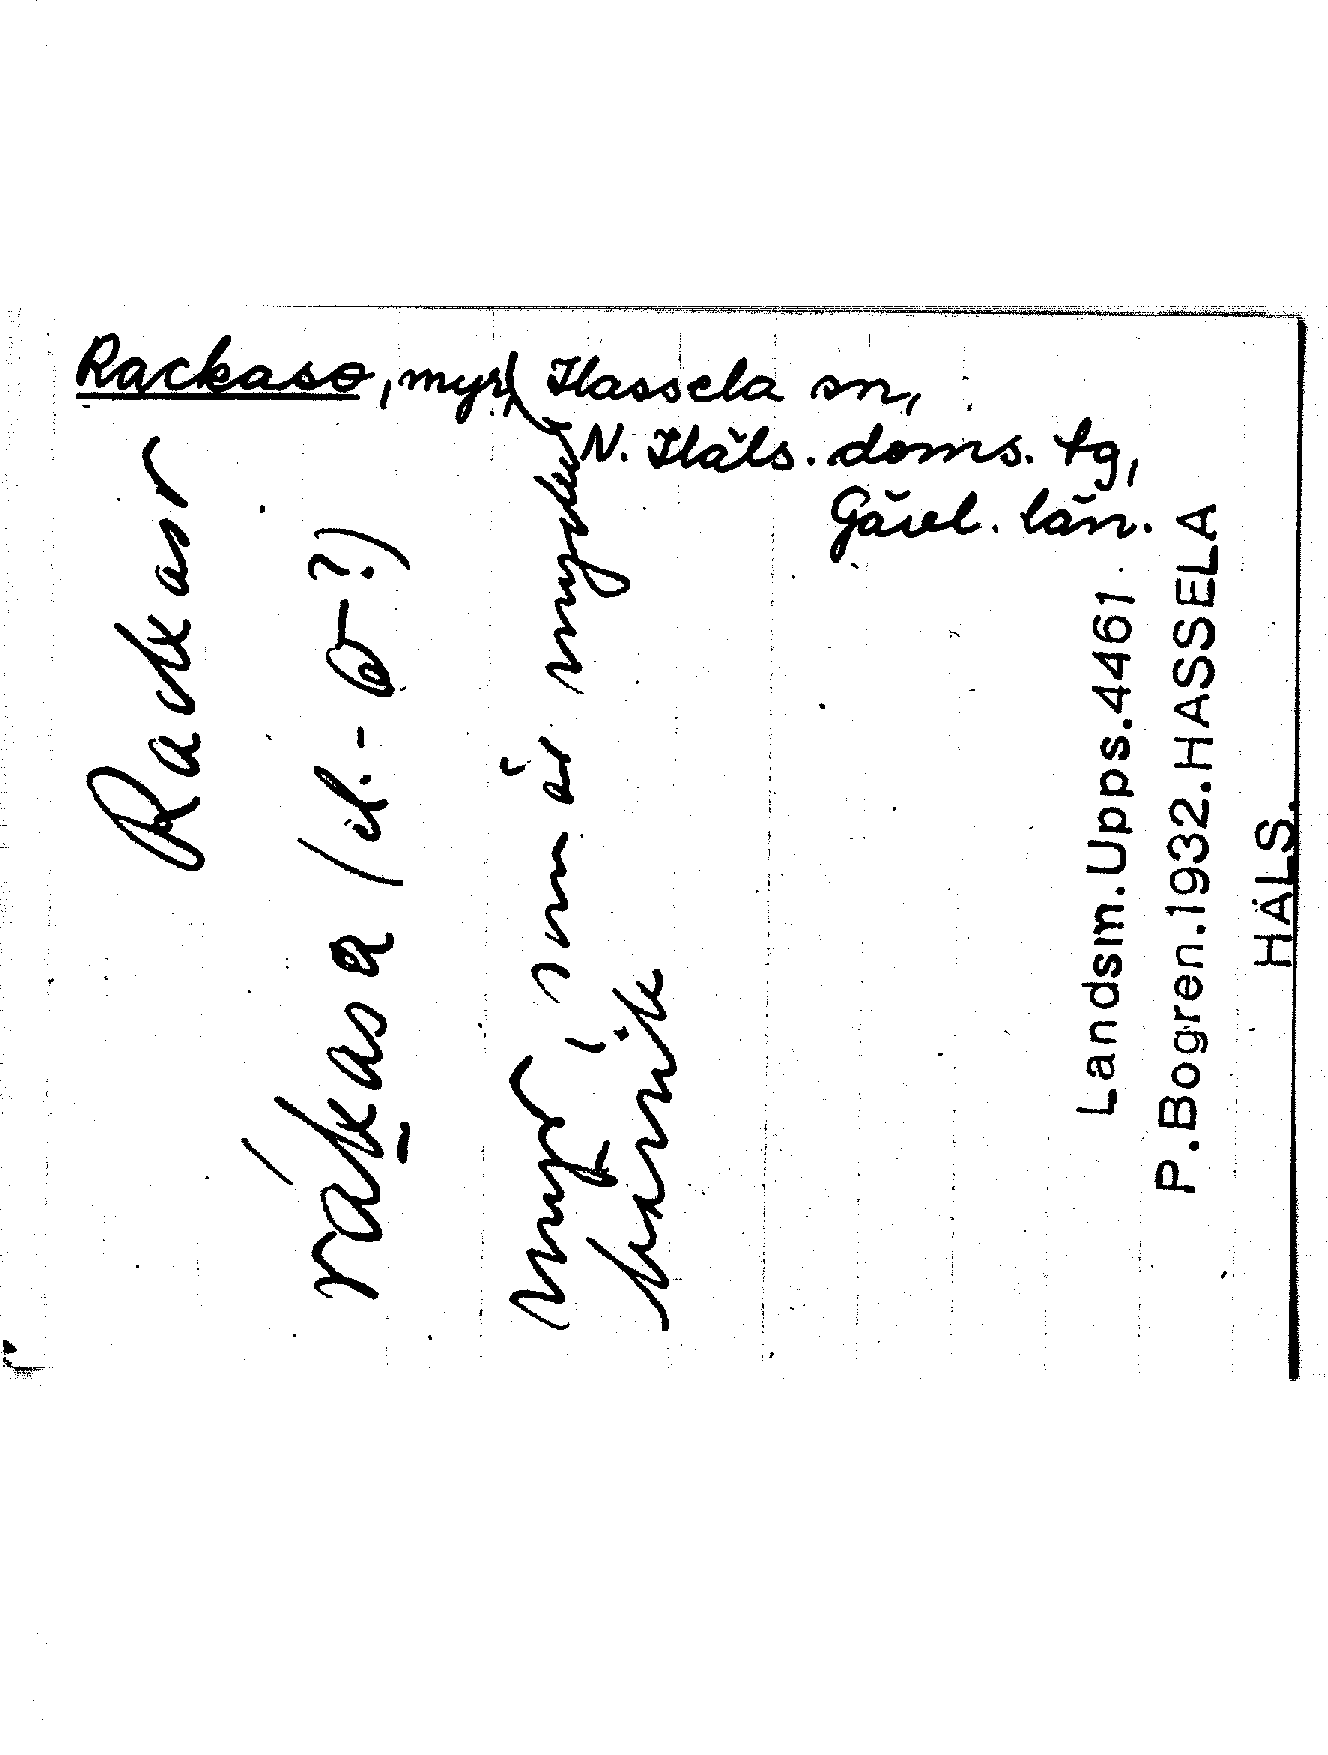 Rackaso, myr, Hassela sn,
N. Häls. doms. tg,
Gävl. län.
Rackasr
rákasa (el. -
myr, som är mycket
Landsm.Upps.4461
P.Bogren.1932.HASSELA
HÄLS.